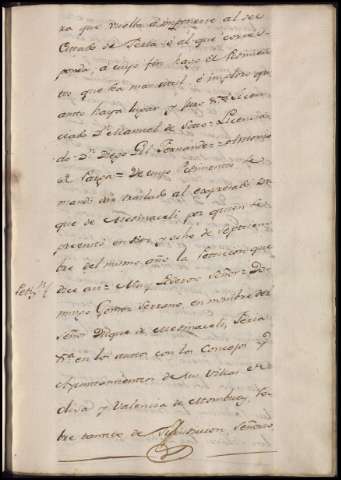 ra que vuelba á imponerse al se
Creado de Feria ó al que corres
ponda, á cuyo fin hago el Pedimen
to que sea mas util, é imploro qu
anto haya lugar y pido &ª Licen
ciado Dn Manuel de Soto = Licencia
do Dn Diego Gil Fernandez = Antonio
de = De cuyo Pedimento se
mandó dar traslado al expresado Du
que de Medinaceli, por quien se
presentó en diez y ocho de septiem
bre del mismo año la Peticion que
Petn dice asi: Muy Poderoso Señor: Do
mingo Gomez Serrano, en nombre del
Señor Duque de Medinaceli, Feria
&ª en los autos con los Concejos y
Ayuntamientos de sus Villas de
Oliva y Valencia de Mombuey, so
bre tanteo de Jurisdiccion, Señorio